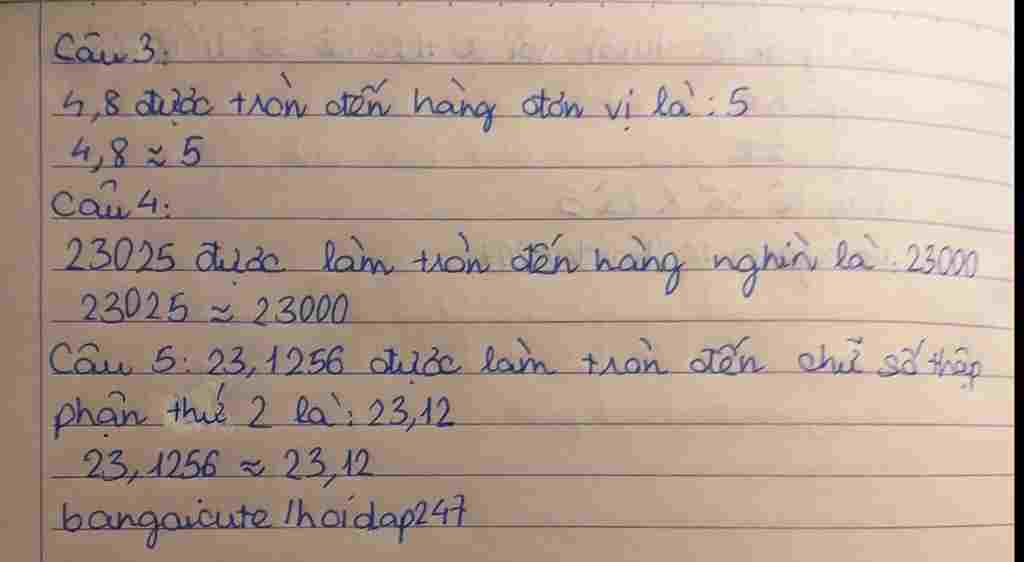 Câu 3:
4,8 được tròn đến hàng đơn vị là: 5
4,8 ≈ 5
Câu 4:
23025 được làm tròn đến hàng nghìn là: 23000
23025 ≈ 23000
Câu 5: 23,1256 được làm tròn đến chữ số thập
phận thứ 2 là: 23,12
23,1256 ≈ 23,12
bangaicute/hoidap247